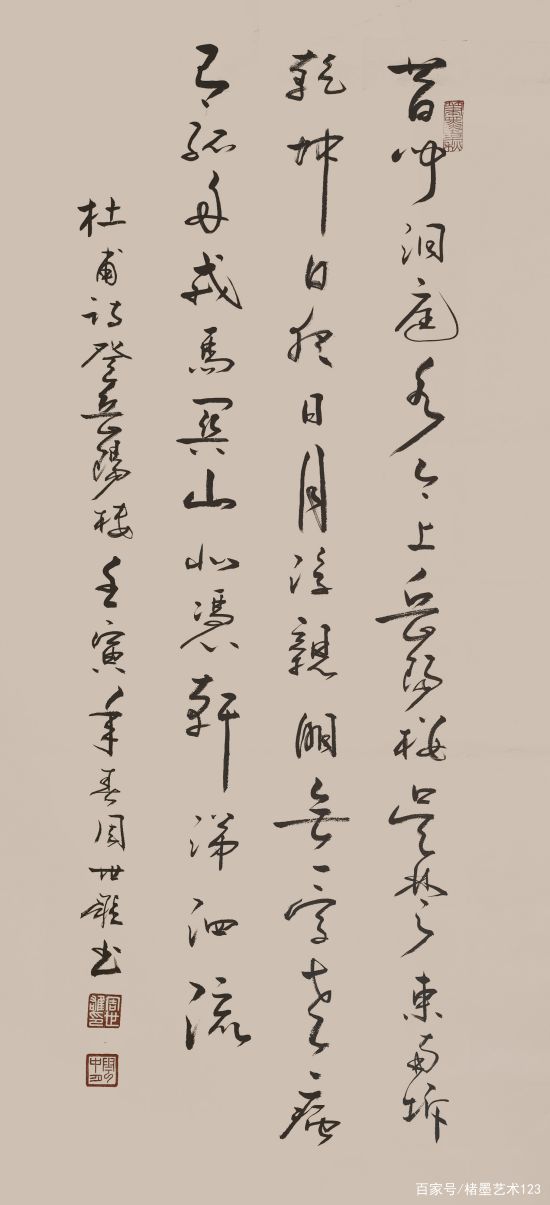 昔聞洞庭水今上岳陽樓吳楚東南坼
乾坤日夜日月浮親朋無一字老病
有孤舟戎馬關山北憑軒涕泗流
杜甫詩登岳陽樓壬寅年春周世雄書
周世雄印
百家号/楮墨艺术123